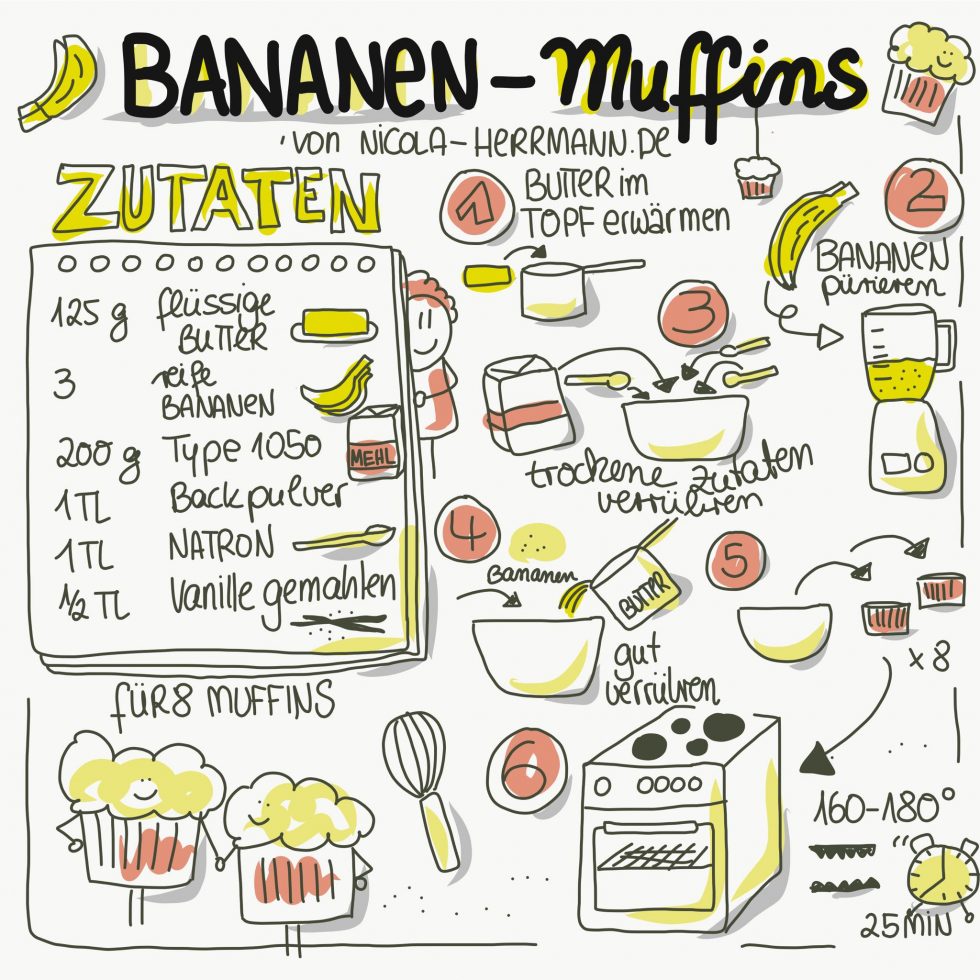 BANANEN-Muffins
von NICOLA-HERRMANN.DE
ZUTATEN
125 g flüssige
BUTTER
3 reife
BANANEN
200 g Type 1050
MEHL
1 TL Backpulver
1 TL NATRON
1/2 TL Vanille gemahlen
für 8 MUFFINS
1
BUTTER im
TOPF erwärmen
2
BANANEN
pürieren
3
trockene Zutaten
verrühren
4
Bananen
BUTTER
gut
verrühren
5
x 8
6
160-180°
25 MIN